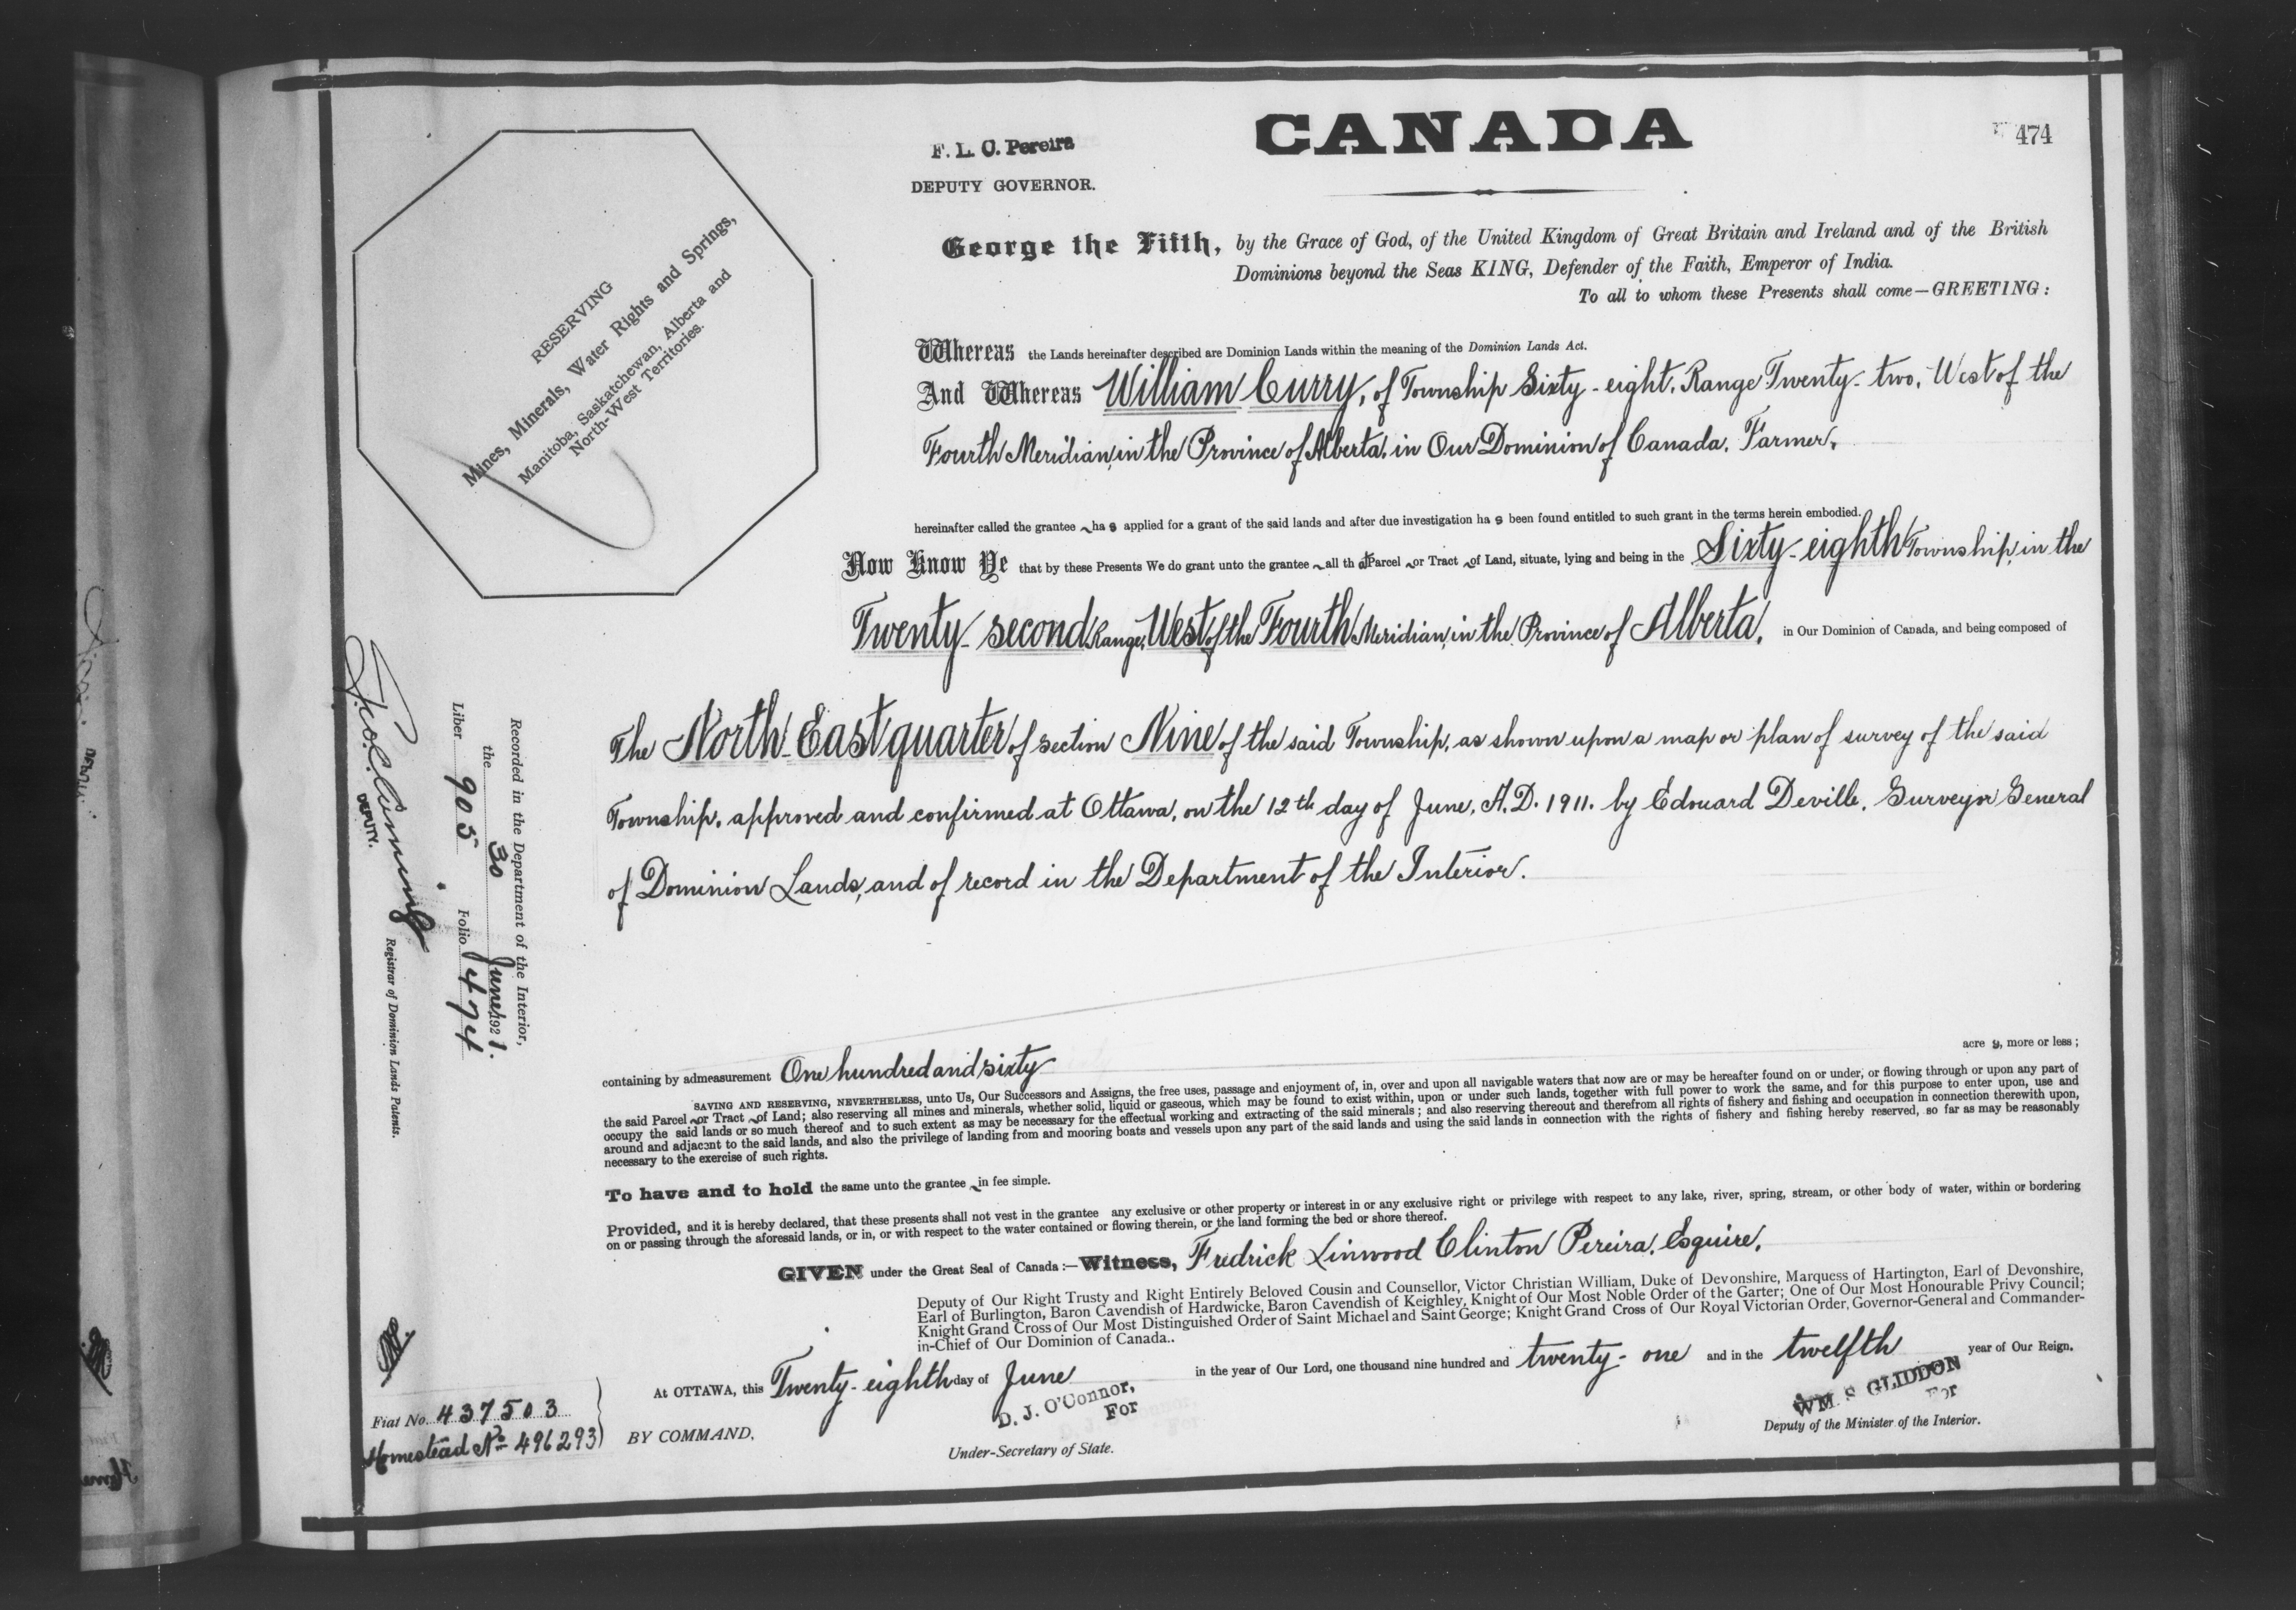 CANADA
474
F. L. C. Pereira
DEPUTY GOVERNOR.
RESERVING
Mines, Minerals, Water Rights and Springs,
Manitoba, Saskatchewan, Alberta and
North-West Territories.
George the Fifth, by the Grace of God, of the United Kingdom of Great Britain and Ireland and of the British
Dominions beyond the Seas KING, Defender of the Faith, Emperor of India.
To all to whom these Presents shall come—GREETING:
Whereas the Lands hereinafter described are Dominion Lands within the meaning of the Dominion Lands Act.
And Whereas William Curry, of Township Sixty-eight, Range Twenty-two, West of the
Fourth Meridian, in the Province of Alberta, in Our Dominion of Canada, Farmer,
hereinafter called the grantee has applied for a grant of the said lands and after due investigation has been found entitled to such grant in the terms herein embodied.
Now Know Ye that by these Presents We do grant unto the grantee all that Parcel or Tract of Land, situate, lying and being in the Sixty-eighth Township, in the
Twenty-second Range, West of the Fourth Meridian, in the Province of Alberta, in Our Dominion of Canada, and being composed of
The North East quarter of section Nine of the said Township, as shown upon a map or plan of survey of the said
Township, approved and confirmed at Ottawa, on the 12th day of June, A.D. 1911. by Edouard Deville, Surveyor General
of Dominion Lands, and of record in the Department of the Interior.
Recorded in the Department of the Interior,
the 30 June, 1921.
Liber 905 Folio 474
DEPUTY.
Registrar of Dominion Lands Patents.
containing by admeasurement One hundred and sixty acres, more or less;
SAVING AND RESERVING, NEVERTHELESS, unto Us, Our Successors and Assigns, the free uses, passage and enjoyment of, in, over and upon all navigable waters that now are or may be hereafter found on or under, or flowing through or upon any part of
the said Parcel or Tract of Land; also reserving all mines and minerals, whether solid, liquid or gaseous, which may be found to exist within, upon or under such lands, together with full power to work the same, and for this purpose to enter upon, use and
occupy the said lands or so much thereof and to such extent as may be necessary for the effectual working and extracting of the said minerals; and also reserving thereout and therefrom all rights of fishery and fishing and occupation in connection therewith upon,
around and adjacent to the said lands, and also the privilege of landing from and mooring boats and vessels upon any part of the said lands and using the said lands in connection with the rights of fishery and fishing hereby reserved, so far as may be reasonably
necessary to the exercise of such rights.
To have and to hold the same unto the grantee in fee simple.
Provided, and it is hereby declared, that these presents shall not vest in the grantee any exclusive or other property or interest in or any exclusive right or privilege with respect to any lake, river, spring, stream, or other body of water, within or bordering
on or passing through the aforesaid lands, or in, or with respect to the water contained or flowing therein, or the land forming the bed or shore thereof.
GIVEN under the Great Seal of Canada:—Witness, Fredrick Linwood Clinton Pereira, Esquire,
Deputy of Our Right Trusty and Right Entirely Beloved Cousin and Counsellor, Victor Christian William, Duke of Devonshire, Marquess of Hartington, Earl of Devonshire,
Earl of Burlington, Baron Cavendish of Hardwicke, Baron Cavendish of Keighley, Knight of Our Most Noble Order of the Garter; One of Our Most Honourable Privy Council;
Knight Grand Cross of Our Most Distinguished Order of Saint Michael and Saint George; Knight Grand Cross of Our Royal Victorian Order, Governor-General and Commander-
in-Chief of Our Dominion of Canada..
At OTTAWA, this Twenty-eighth day of June in the year of Our Lord, one thousand nine hundred and twenty-one and in the twelfth year of Our Reign.
D. J. O'Connor,
For
WM. S. GLIDDON
For
Fiat No. 437503
Homestead No 496293
BY COMMAND,
Under-Secretary of State.
Deputy of the Minister of the Interior.